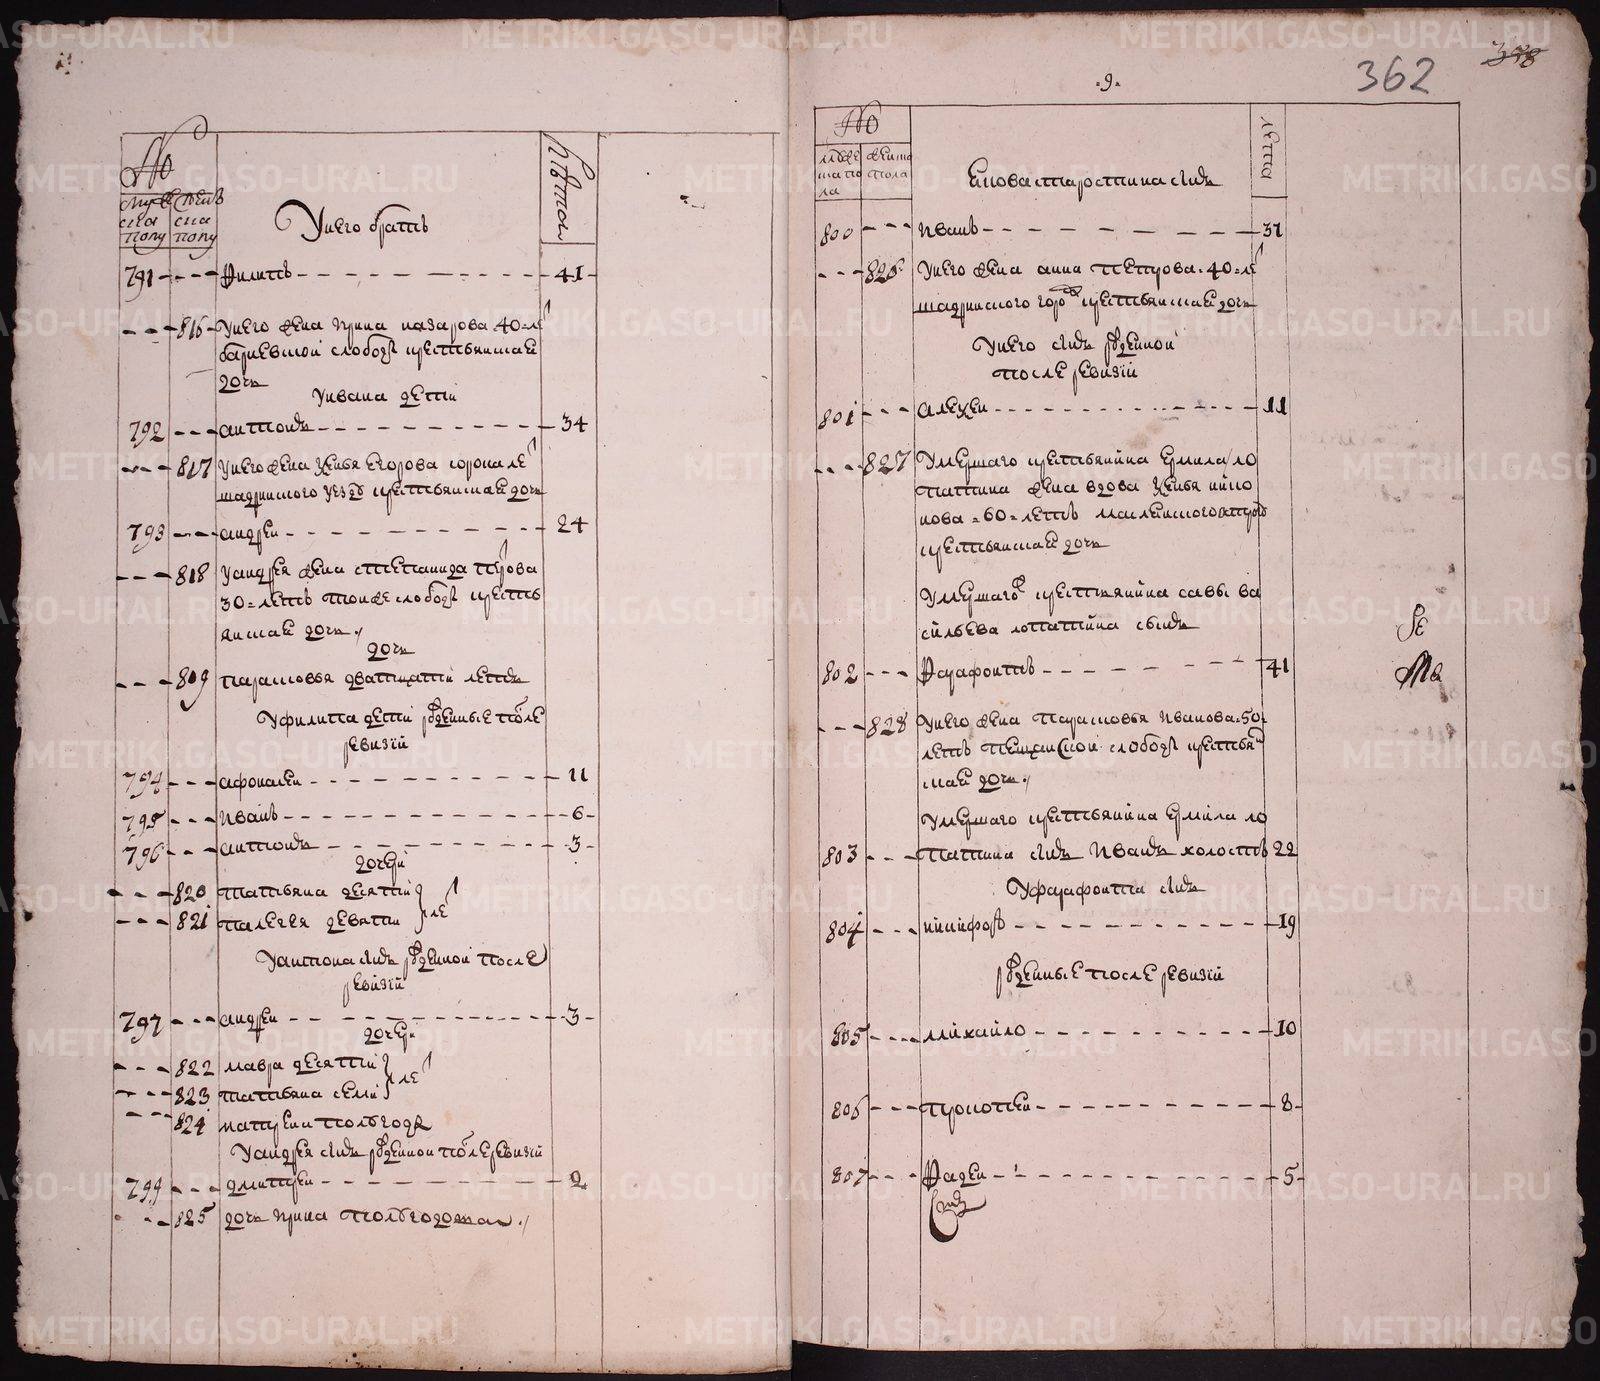 №
мужеска полу
женска полу
У него братъ
лѣтом
791 Филипъ 41
816 У него жена Ирина назарова 40 ле
барневской слобод крестьянская
дочь
У ивана дети
792 антонъ 34
817 У него жена Ксенья Егорова сорока ле
шадринского уезд крестьянская дочь
793 андреи 24
818 У андрея жена степанида петрова
30 летъ тоиже слобод кресть
янская дочь
дочь
809 парасковья дватцати летъ
У филипа дети рожденные после
ревизии
794 афонасеи 11
795 Иванъ 6
796 антонъ 3
дочери
820 татьяна десяти
821 палегея девяти ле
У антона сынъ рожденнои после
ревизии
797 андреи 3
дочери
822 мавра десяти
823 татьяна семи ле
824 матрена полугода
У андрея сынъ рожденнои после ревизии
799 дмитреи 2
825 дочь Ирина полугодовая
9
362
358
№
мужеска пола
женска пола
лета
Ево старостина сынъ
800 Иванъ 37
826 У него жена анна петрова 40 ле
шадринского города крестьянская дочь
У него сынъ рожденнои
после ревизии
801 алексеи 11
827 Умершаго крестьянина Ермила ло
патина жена вдова Ксенья
нова 60 летъ
крестьянская дочь
Умершаго крестьянина савы ва
сильева лопатина сынъ
802 Фарафонтъ 41
828 У него жена парасковья Иванова 50
летъ пещанскои слобод крестьян
ская дочь
Умершаго крестьянина Ермила ло
803 патина сынъ Иванъ холостъ 22
У фарафонта сынъ
804 никифоръ 19
рожденные после ревизии
805 михаило 10
806 прокопеи 8
807 Фадеи 5